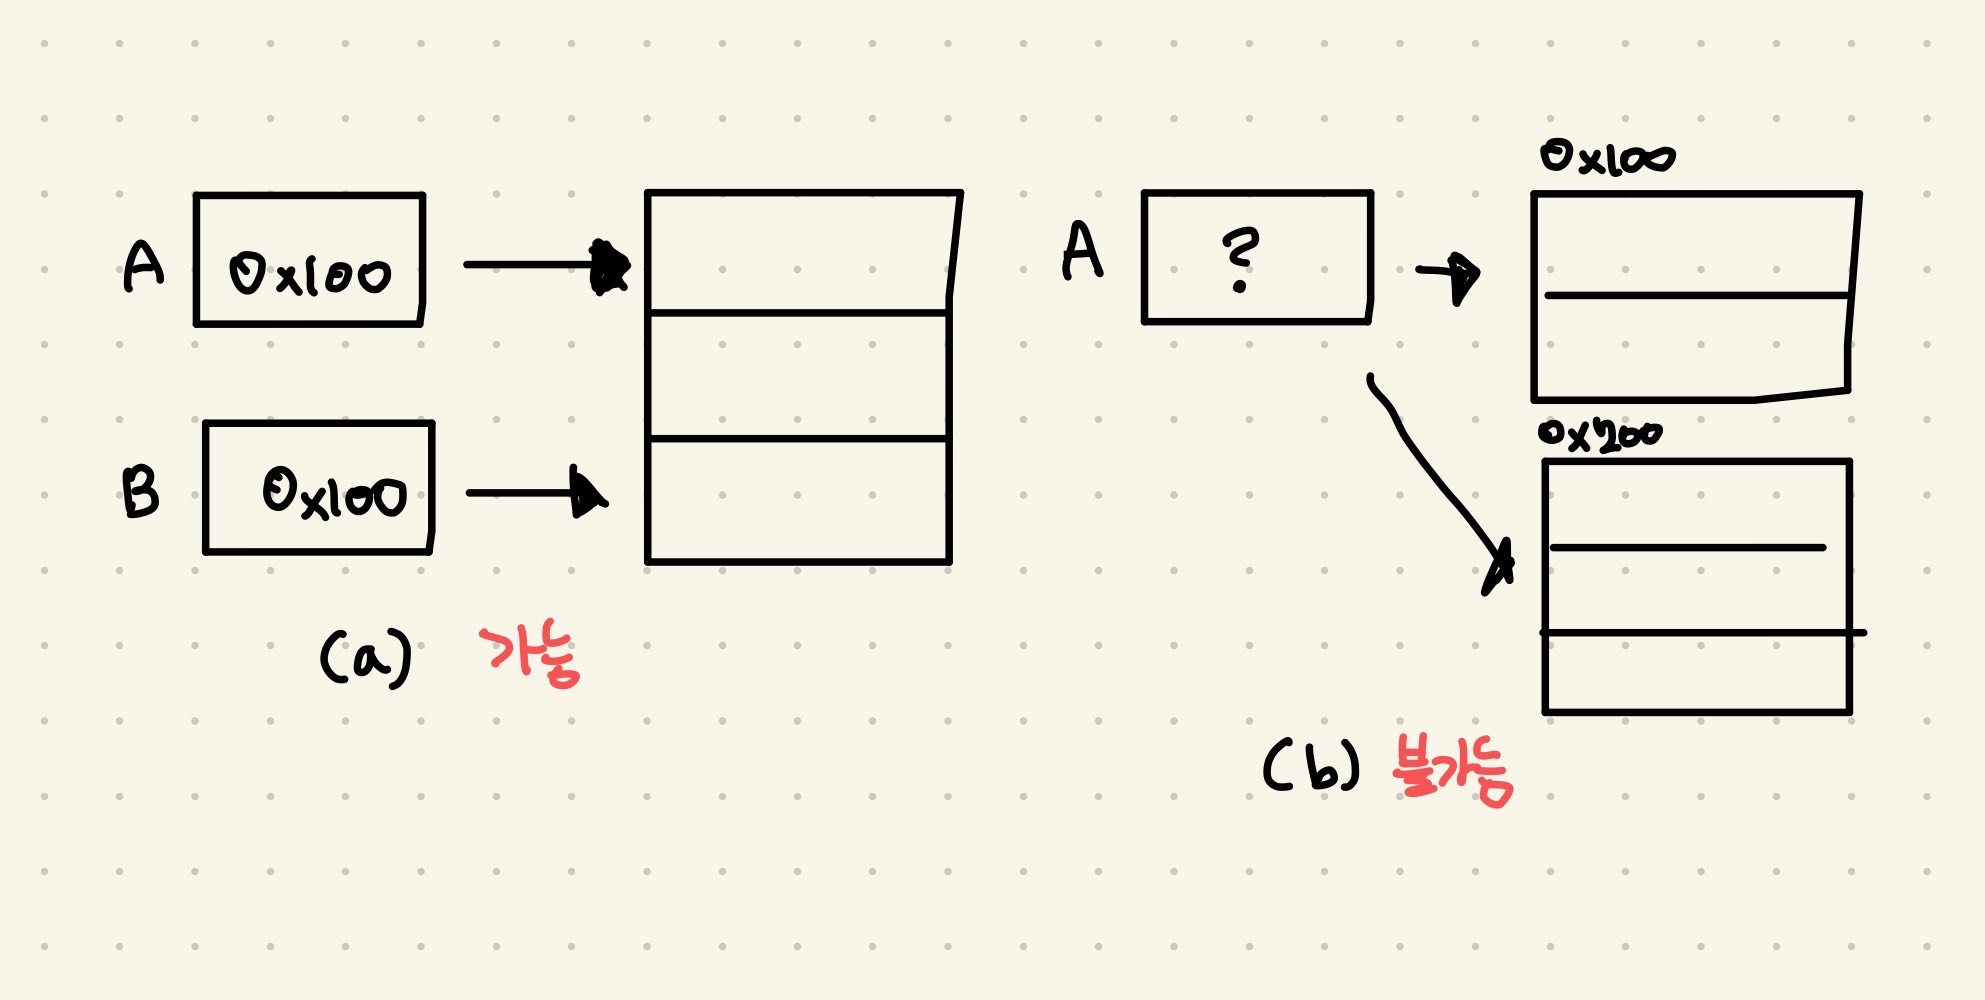 A 0x100
B 0x100
(a) 가능
A ?
0x100
0x200
(b) 불가능